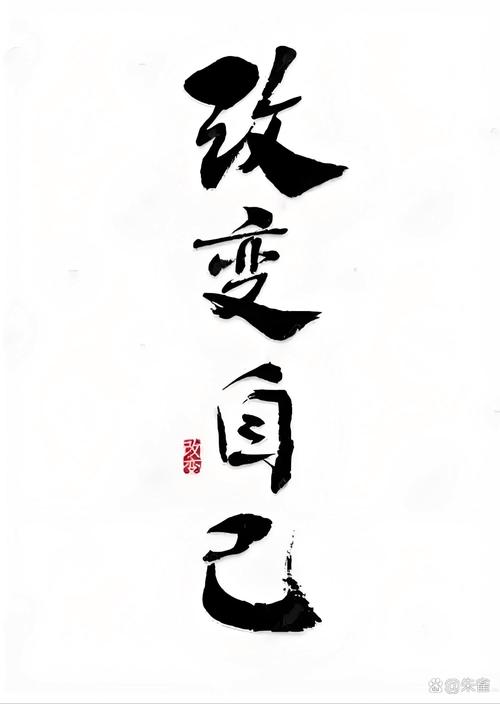 改变自己
改变
@朱雀